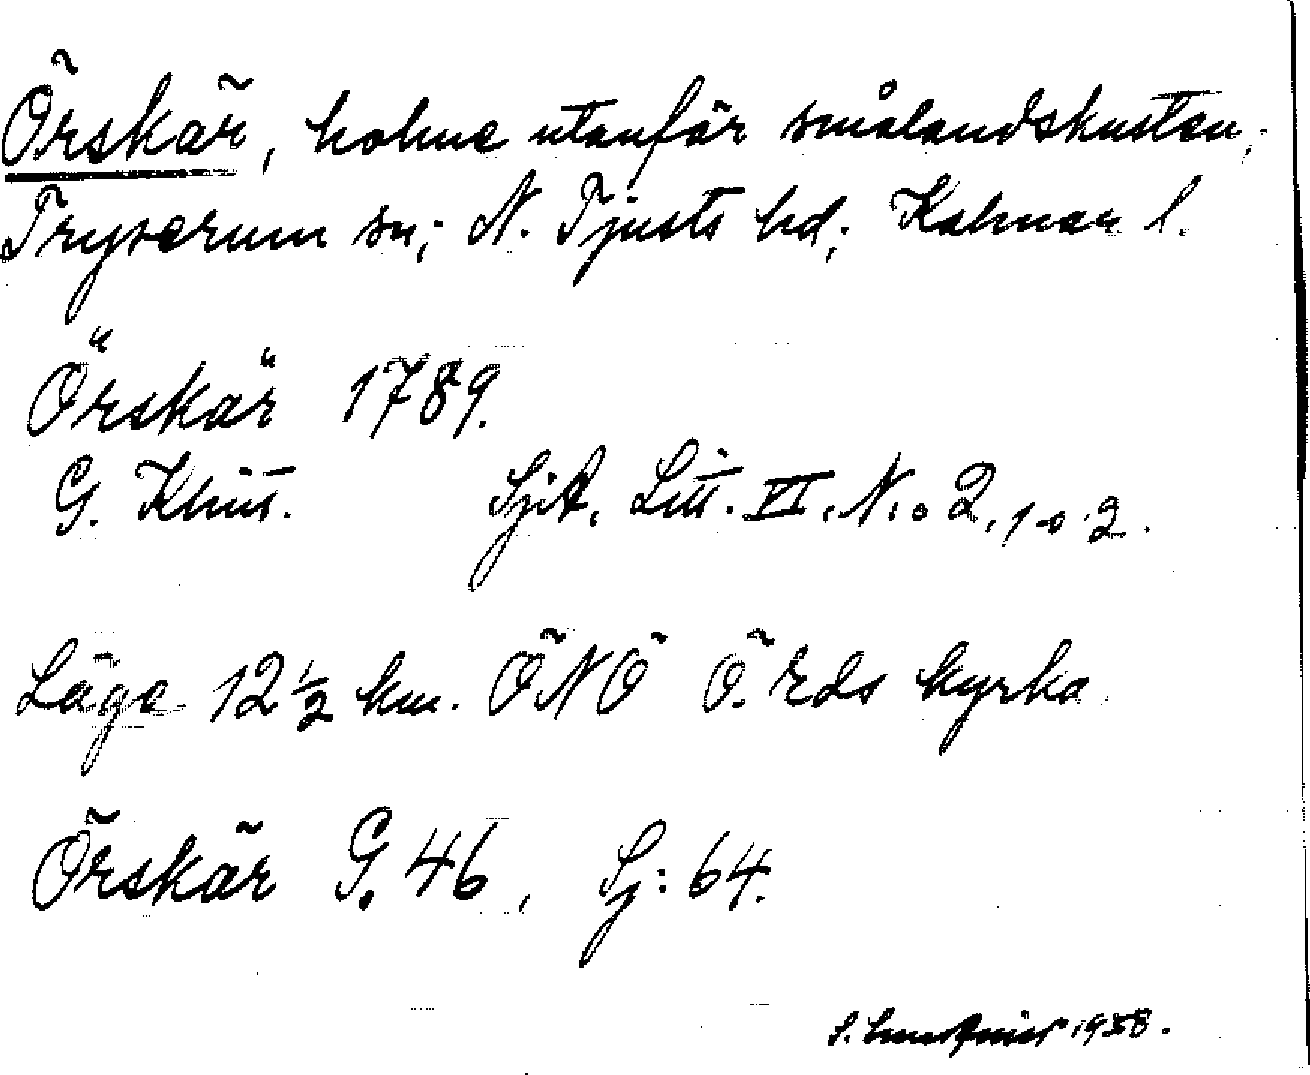 Örskär, holme utanför smålandskusten,
Tryserum sn; N. Tjusts hd; Kalmar l.
Örskär 1789.
G. Klint. SjA, Litt. VI. N:o 2, 1 o 2.
Läge 12 1/2 km. ÖNÖ Ö. Eds kyrka
Örskär G. 46, Sj: 64.
S. 1958.